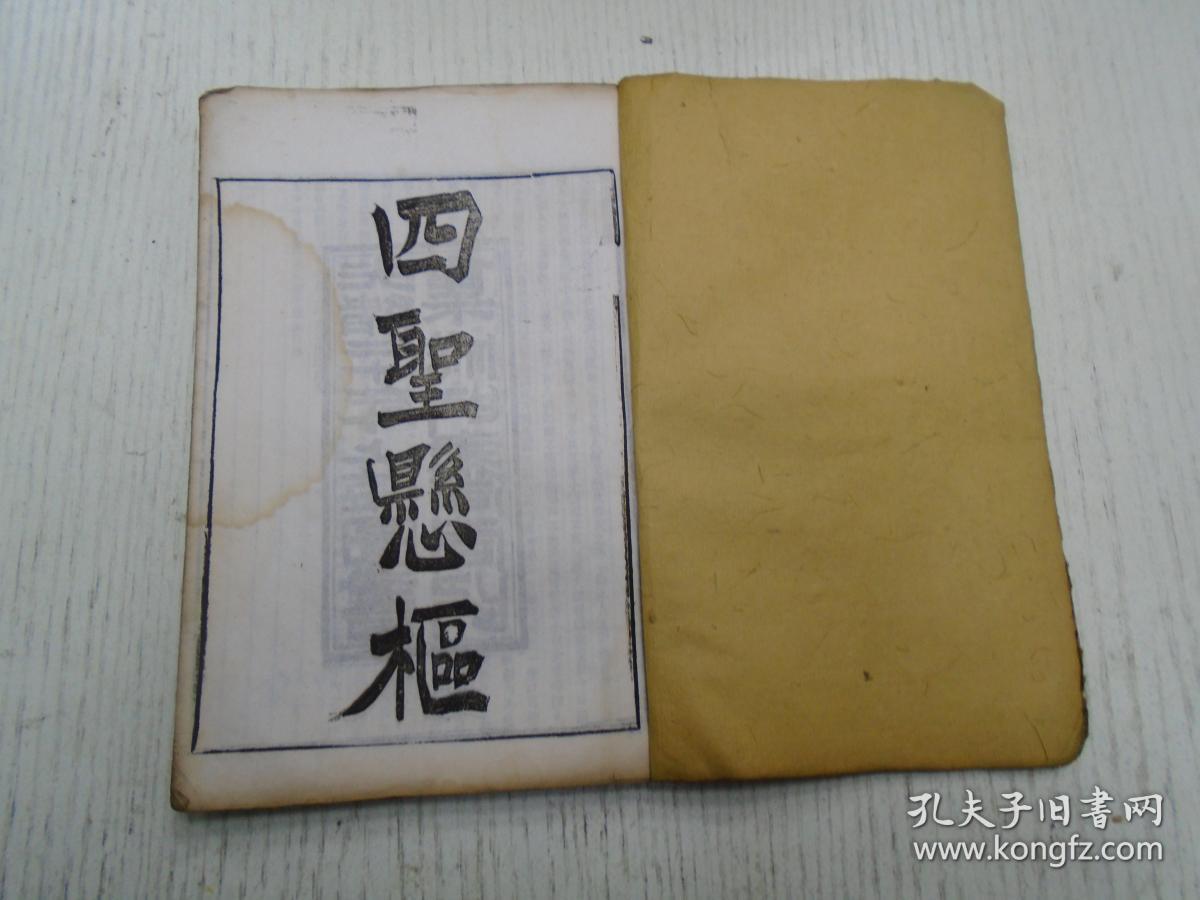 四聖懸樞
孔夫子旧书网
www.kongfz.com